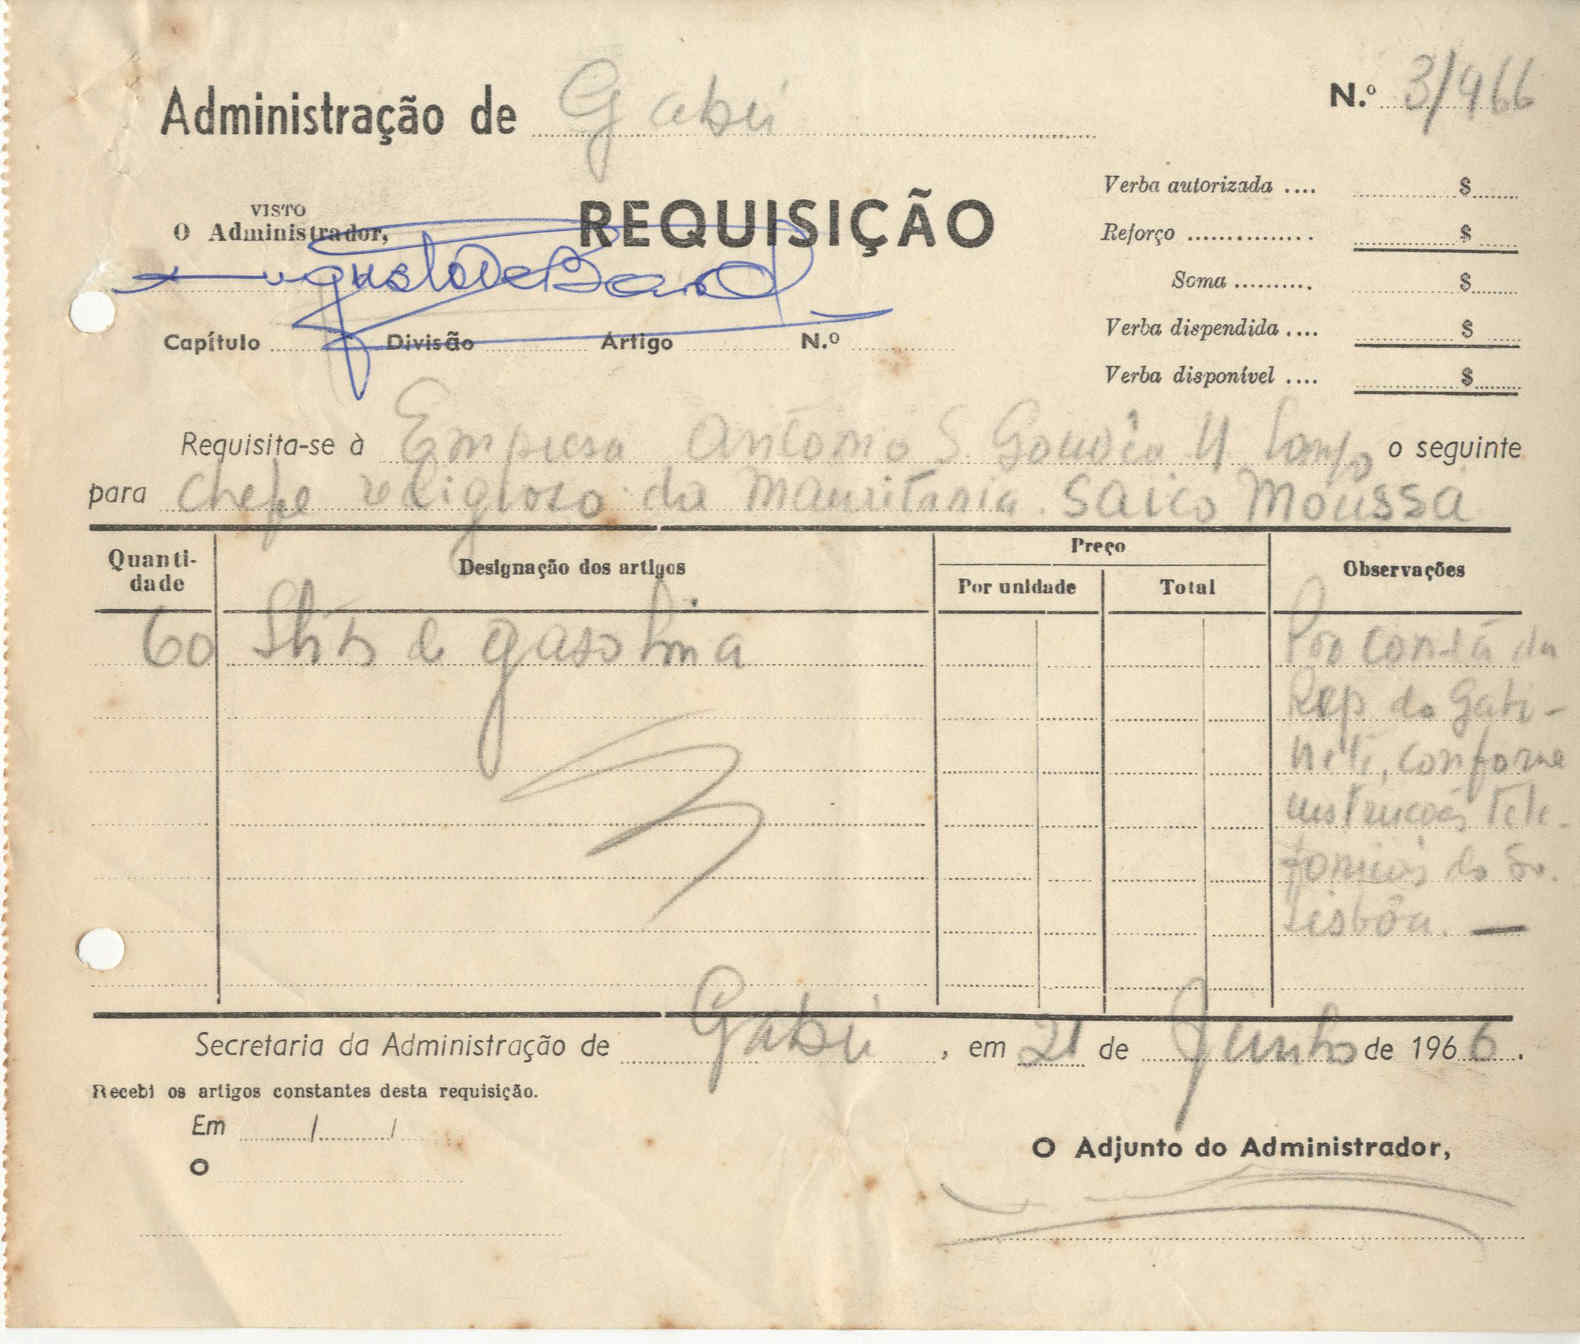 Administração de Gabú
N.º 3/966
VISTO
O Administrador,
REQUISIÇÃO
Verba autorizada .... $
Reforço .............. $
Soma .......... $
Verba dispendida .... $
Verba disponível .... $
Capítulo Divisão Artigo N.º
Requisita-se à Empresa António S. Gouvêa o seguinte
para chefe religioso da Mauritania. Saico Moussa
Quanti-
dade
Designação dos artigos
Preço
Por unidade
Total
Observações
60 gasolina
Por conta da
Rep do Gabi-
nete, conforme
instruções tele-
fonicas do Sr.
Lisbôa. —
Secretaria da Administração de Gabú, em 21 de Junho de 1966.
Recebi os artigos constantes desta requisição.
Em / /
O
O Adjunto do Administrador,